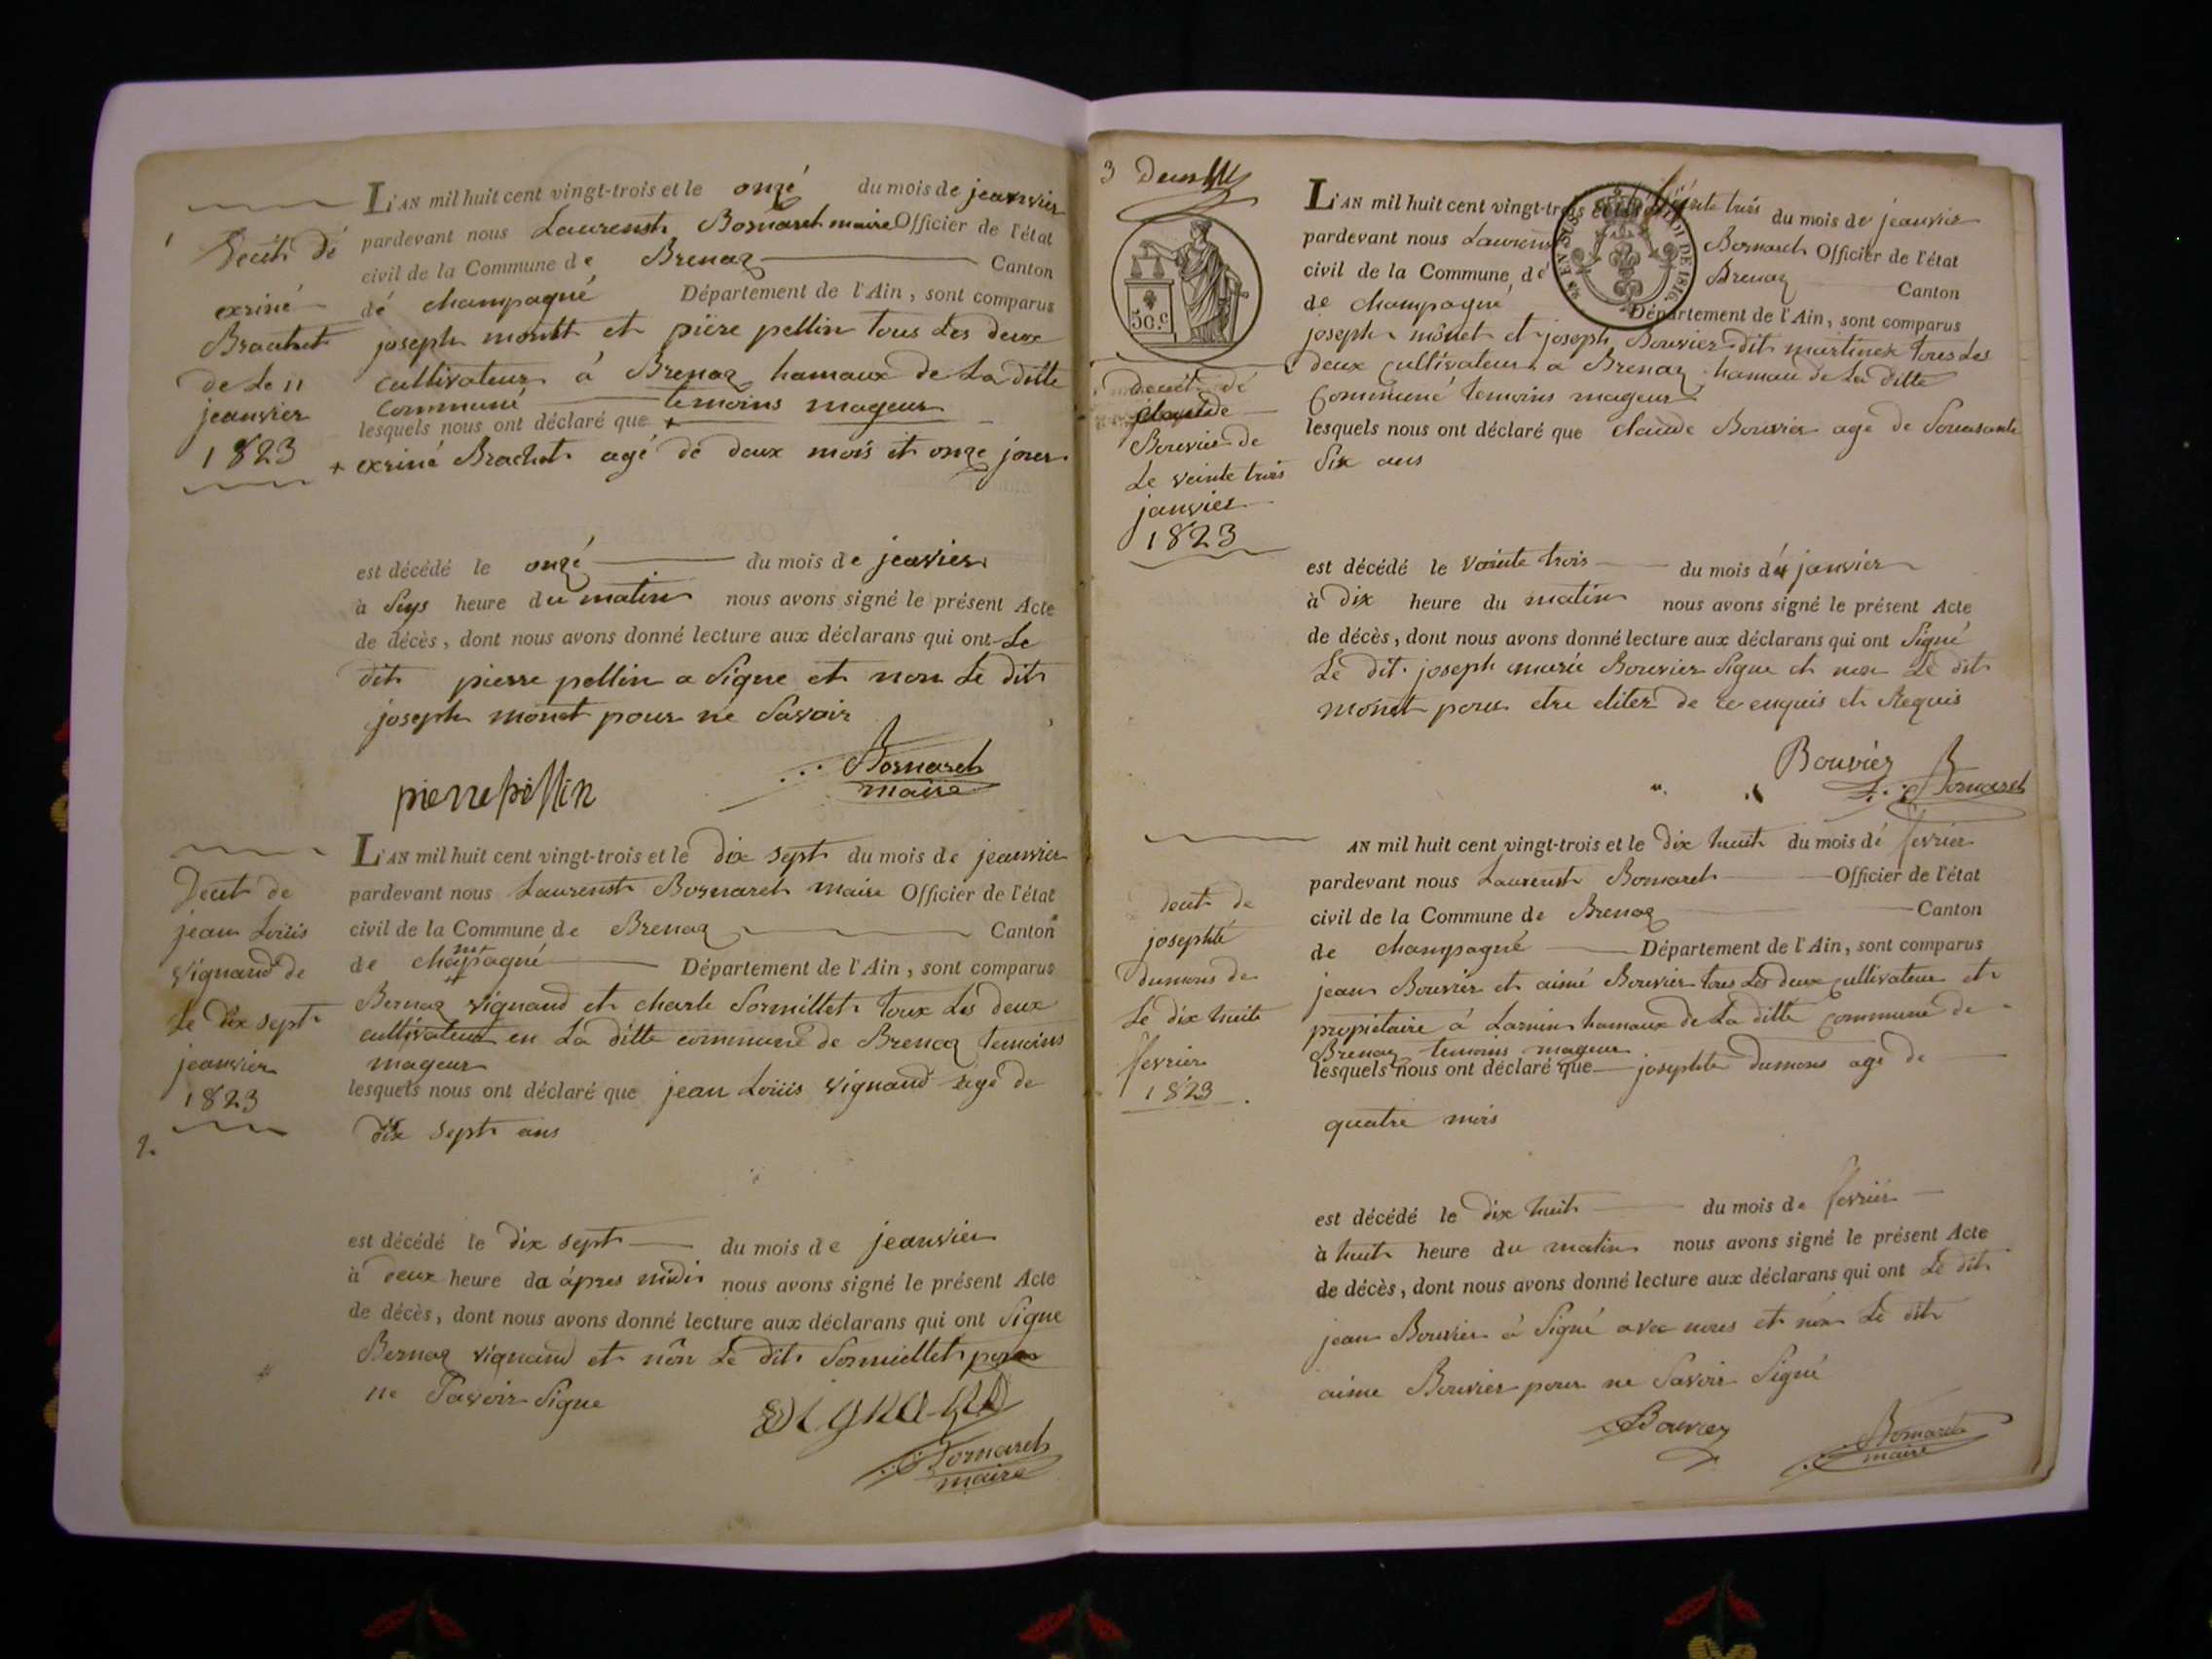 1
Decét dé
exriné
Brachet
de Le 11
jeanvier
1823
L'AN mil huit cent vingt-trois et le onzé du mois de jeanvier
pardevant nous Laurenst Bornaret maire Officier de l'état
civil de la Commune de Brenaz Canton
dé champagné Département de l'Ain, sont comparus
joseph monet et piere pellin tous Les deux
cultivateur á Brenaz hamaux de La ditte
Communé temoins mageur
lesquels nous ont déclaré que +
+ exriné Brachet agé dé deux mois et onze jour
est décédé le onzé du mois de jeavier
à Siys heure du matin nous avons signé le présent Acte
de décès, dont nous avons donné lecture aux déclarans qui ont Le
dit pierre pellin a Signe et non Le dit
joseph monet pour ne Savoir
pierre pellin
Bornaret
maire
Decét de
jean Loüis
vignand de
Le dix sept
jeanvier
1823
2.
L'AN mil huit cent vingt-trois et le dix sept du mois de jeanvier
pardevant nous Laurenst Bornaret maire Officier de l'état
civil de la Commune de Brenaz Canton
de champagné Département de l'Ain, sont comparus
Bernaz vignand et charle Sormillet toux Lés deux
cultivateur en La ditte communé de Brenaz temoins
mageur
lesquels nous ont déclaré que jean Loüis vignand agé de
dix sept ans
est décédé le dix sept du mois de jeanvier
à deux heure da ápres midi nous avons signé le présent Acte
de décès, dont nous avons donné lecture aux déclarans qui ont Signe
Bernaz vignand et nôn Le dit Sormiellet pour
ne Savoir Signe
vignand
Bornaret
maire
3
50.C
DE 1816.
decét dé
claude
Bouvier de
Le veinte trois
janvier
1823
L'AN mil huit cent vingt-trois et le veinte trois du mois de jeanvier
pardevant nous Laurenst Bornaret Officier de l'état
civil de la Commune dé Brenaz Canton
de champagné Département de l'Ain, sont comparus
joseph mônet et joseph Bouvier dit martinex tous Les
deux cultivateur a Brenaz hamau de La ditte
Communé temoins mageur
lesquels nous ont déclaré que claude Bouvier age de Soiasante
Six ans
est décédé le veinte trois du mois de janvier
à dix heure du matin nous avons signé le présent Acte
de décès, dont nous avons donné lecture aux déclarans qui ont Signé
Le dit joseph marie Bouvier Signe et non Le dit
monet pour etre eliter de ce enquis et Requis
Bouvier
Bornaret
decét de
josephté
dumons de
Le dix huite
fevrier
1823
AN mil huit cent vingt-trois et le dix huit du mois dé fevrier
pardevant nous Laurenst Bornaret Officier de l'état
civil de la Commune de Brenaz Canton
de champagné Département de l'Ain, sont comparus
jean Bouvier et aimé Bouvier tous Les deux cultivateur et
propiétaire á Lamin hamaux de La ditte Communé de
Brenaz temoins mageur
lesquels nous ont déclaré que josephte dumons agé de
quatre mois
est décédé le dix huit du mois de fevrier
à huit heure du matin nous avons signé le présent Acte
de décès, dont nous avons donné lecture aux déclarans qui ont Le dit
jean Bouvier á Signé avec nous et nón Le dit
aime Bouvier pour ne Savoir Signé
Bouvier
Bornaret
maire